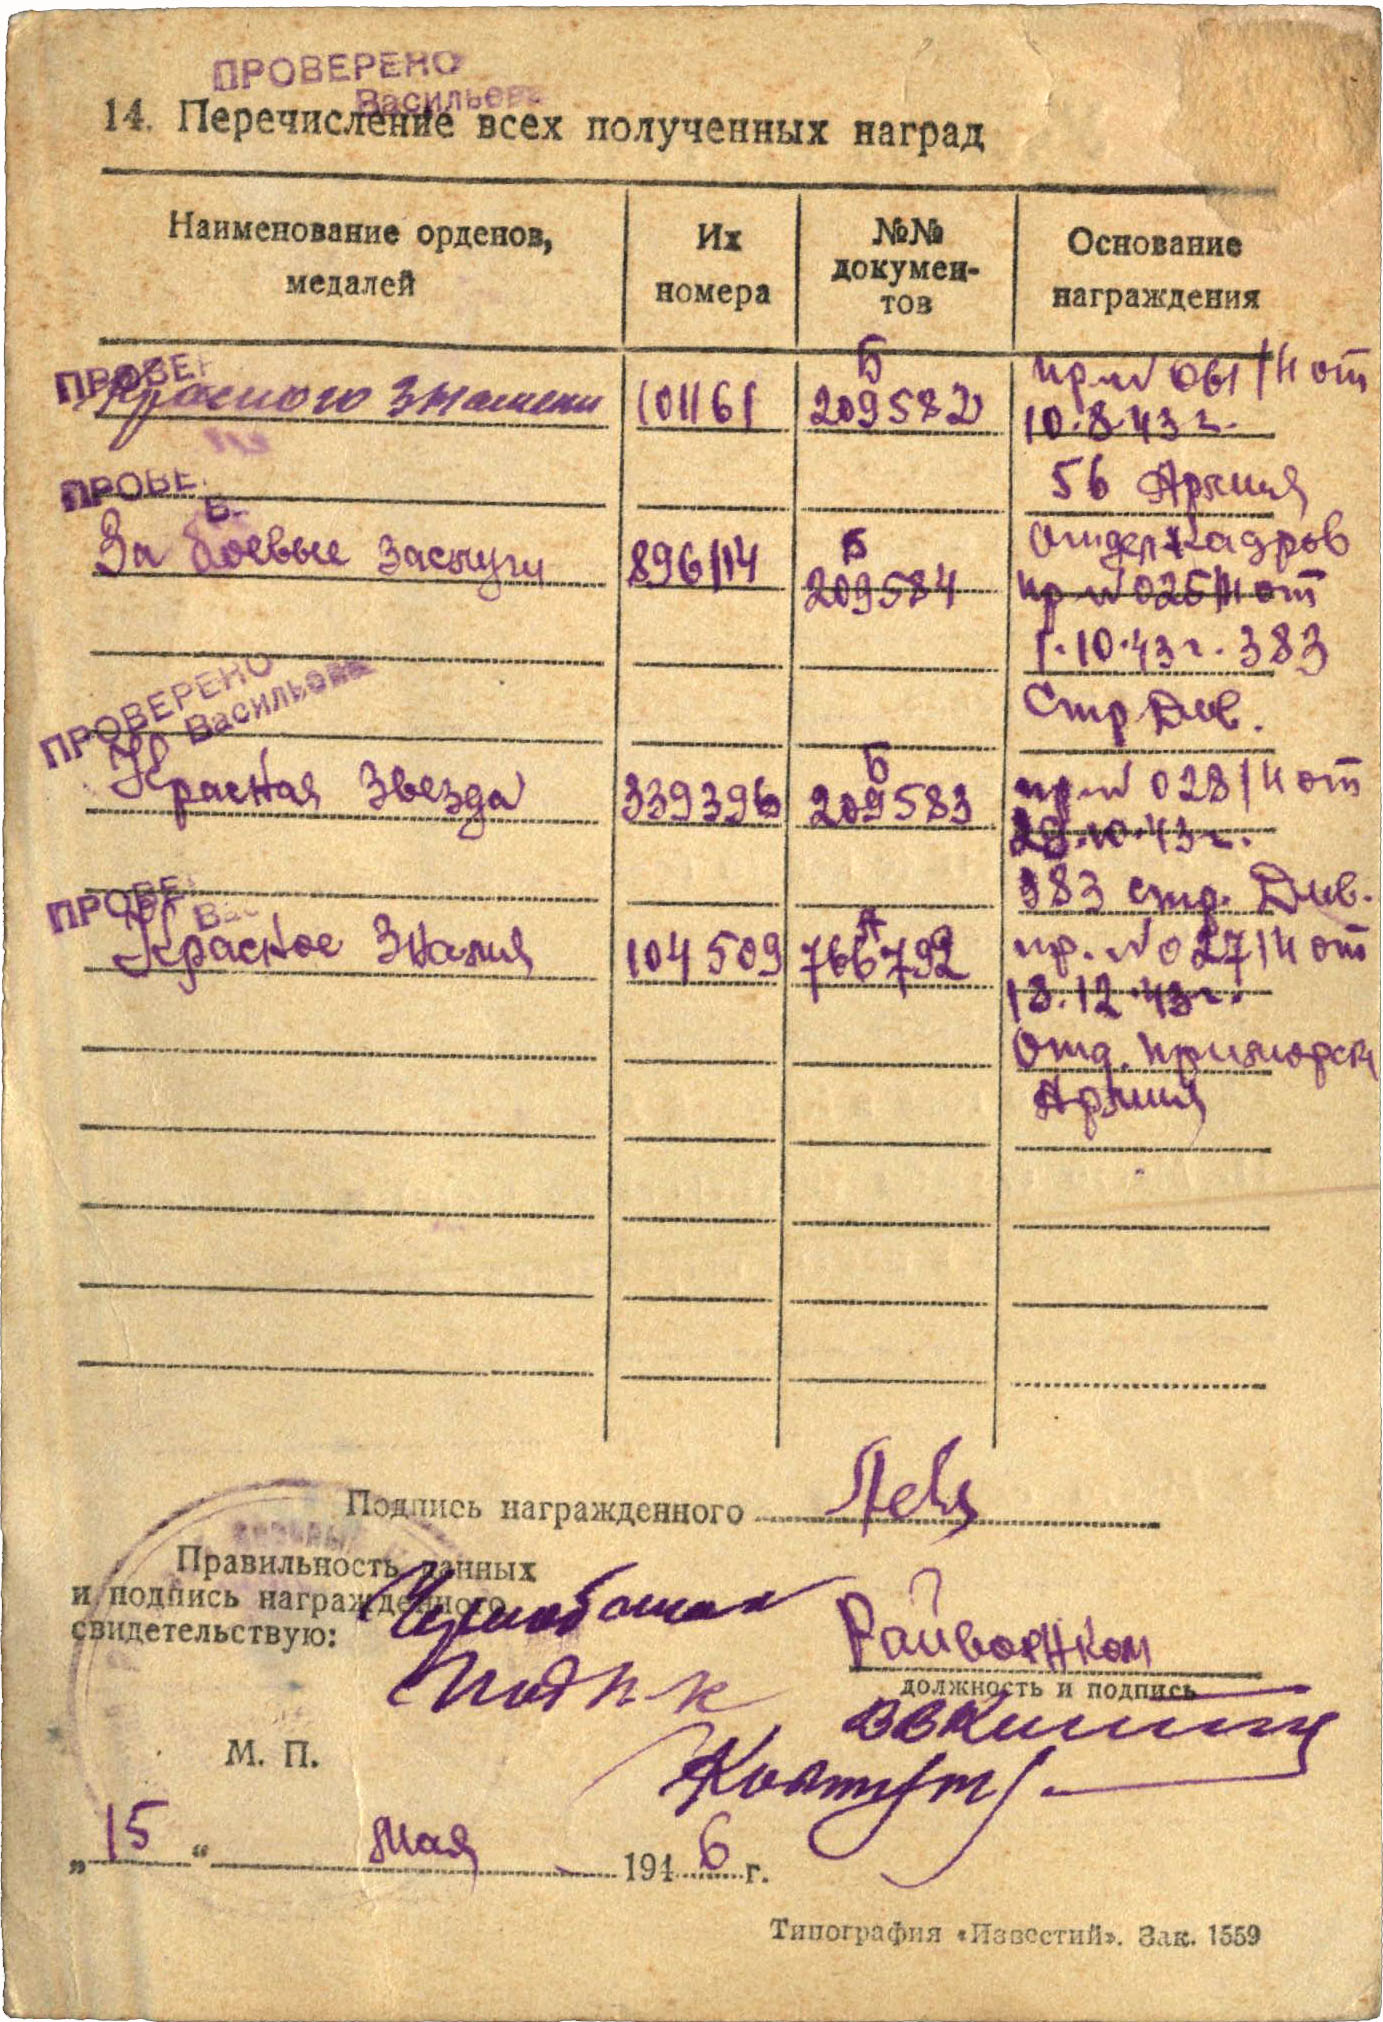 ПРОВЕРЕНО
Васильева
14. Перечисление всех полученных наград
Наименование орденов, медалей
Их номера
№№ докумен-тов
Основание награждения
ПРОВЕР
Красного Знамени 101161 Б 209582 пр. № 061/Н от
10.8.43 г.
ПРОВЕ
56 Армия
За боевые заслуги 896114 Б 209584 Отдел Кадров
пр № 025/Н от
1.10.43 г. 383
Стр Див.
ПРОВЕРЕНО
Васильева
Красная Звезда 339396 Б 209583 пр № 028/Н от
29.10.43 г.
383 стр. Див.
ПРОВЕ
Вас
Красное Знамя 104509 А 766792 пр. № 027/Н от
13.12.43 г.
Отд. Приморск
Армия
Подпись награжденного
Правильность данных
и подпись награжденного
свидетельствую:
Подп-к
Райвоенком
должность и подпись
М. П.
„15“ мая 1946 г.
Типография «Известий». Зак. 1559